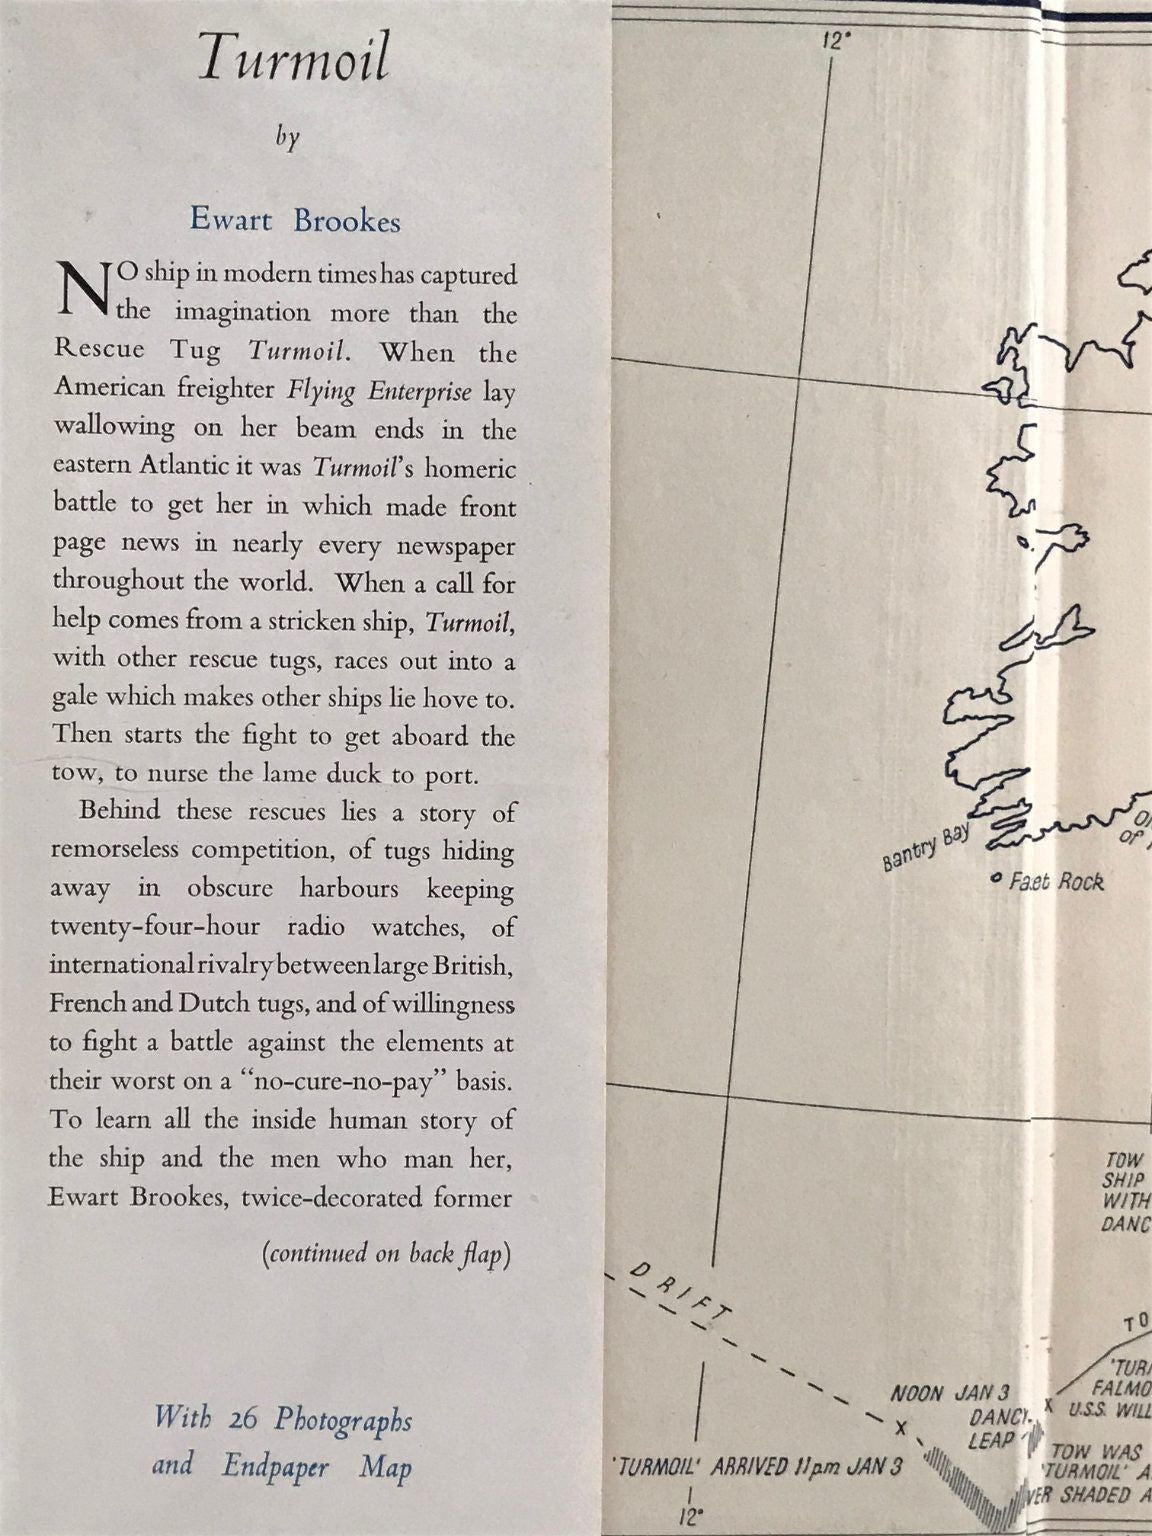 Turmoil
by
Ewart Brookes
NO ship in modern times has captured
the imagination more than the
Rescue Tug Turmoil. When the
American freighter Flying Enterprise lay
wallowing on her beam ends in the
eastern Atlantic it was Turmoil's homeric
battle to get her in which made front
page news in nearly every newspaper
throughout the world. When a call for
help comes from a stricken ship, Turmoil,
with other rescue tugs, races out into a
gale which makes other ships lie hove to.
Then starts the fight to get aboard the
tow, to nurse the lame duck to port.
Behind these rescues lies a story of
remorseless competition, of tugs hiding
away in obscure harbours keeping
twenty-four-hour radio watches, of
international rivalry between large British,
French and Dutch tugs, and of willingness
to fight a battle against the elements at
their worst on a "no-cure-no-pay" basis.
To learn all the inside human story of
the ship and the men who man her,
Ewart Brookes, twice-decorated former
(continued on back flap)
With 26 Photographs
and Endpaper Map
12°
Bantry Bay
OF
Rock
TOW
SHIP
WITH
DANC
DRIFT
TO
'TUR
FALMO
U.S.S. WILL
NOON JAN 3
LEAP
'TURMOIL' ARRIVED 11pm JAN 3
TOW WAS
'TURMOIL' A
SHADED A
12°